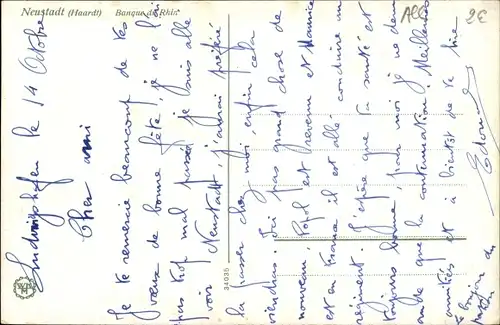 Neustadt (Haardt) Banque du Rhin
ALG
2€
Ludwigshafen le 14 Octobre
Cher ami
Je te remercie beaucoup de tes
vœux de bonne fête, je ne l'ai
pas trop mal passée, je suis allé
voir Neustadt, j'aurais préféré
la passer chez moi, enfin cela
viendra. Ici pas grand chose de
nouveau, Popol est revenu et Maurice
est en France il est allé conduire un
régiment. J'espère que ta santé est
toujours bonne, pour moi je ne
que la continuation. Meilleures
amitiés et à bientôt de te lire
Edouard
Le bonjour
34035